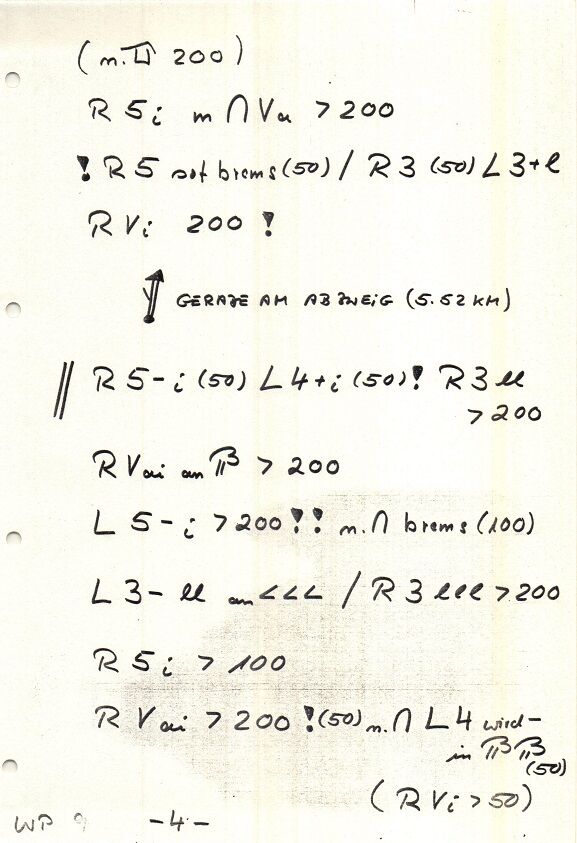 (n. 200)
R 5i m ∩ Va > 200
! R 5 sof brems (50) / R 3 (50) L 3+l
R Vi 200 !
GERADE AM ABZWEIG (5.52 KM)
R 5-i (50) L 4+i (50) ! R 3 ll
> 200
R Vai an > 200
L 5-i > 200 !! n. ∩ brems (100)
L 3- ll an <<< / R 3 lll > 200
R 5i > 100
R Vai > 200 ! (50) n. ∩ L 4 wird-
in
(50)
(R Vi > 50)
WP 9 -4-